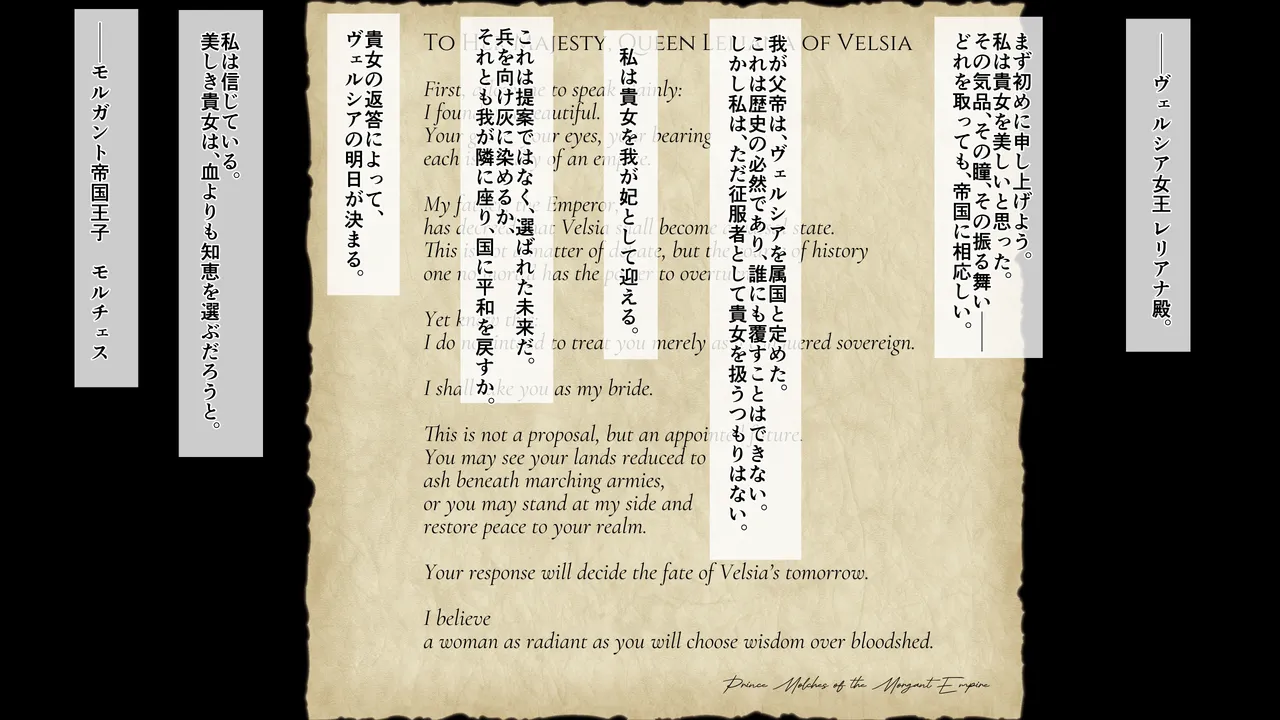 ――ヴェルシア女王 レリアナ殿。
まず初めに申し上げよう。
私は貴女を美しいと思った。
その気品、その瞳、その振る舞い――
どれを取っても、帝国に相応しい。
我が父帝は、ヴェルシアを属国と定めた。
これは歴史の必然であり、誰にも覆すことはできない。
しかし私は、ただ征服者として貴女を扱うつもりはない。
私は貴女を我が妃として迎える。
これは提案ではなく、選ばれた未来だ。
兵を向け灰に染めるか、
それとも我が隣に座り、国に平和を戻すか。
貴女の返答によって、
ヴェルシアの明日が決まる。
私は信じている。
美しき貴女は、血よりも知恵を選ぶだろうと。
――モルガント帝国王子 モルチェス
To Her Majesty, Queen of Velsia
First, to speak plainly:
I found beautiful.
Your your eyes, your bearing
each is of an empire.
My the Emperor,
has decreed that Velsia shall become state.
This is not a matter of debate, but the of history
one no has the power to overturn.
Yet know this:
I do not intend to treat you merely as conquered sovereign.
I shall take you as my bride.
This is not a proposal, but an appointed future.
You may see your lands reduced to
ash beneath marching armies,
or you may stand at my side and
restore peace to your realm.
Your response will decide the fate of Velsia’s tomorrow.
I believe
a woman as radiant as you will choose wisdom over bloodshed.
Prince Molches of the Morgant Empire